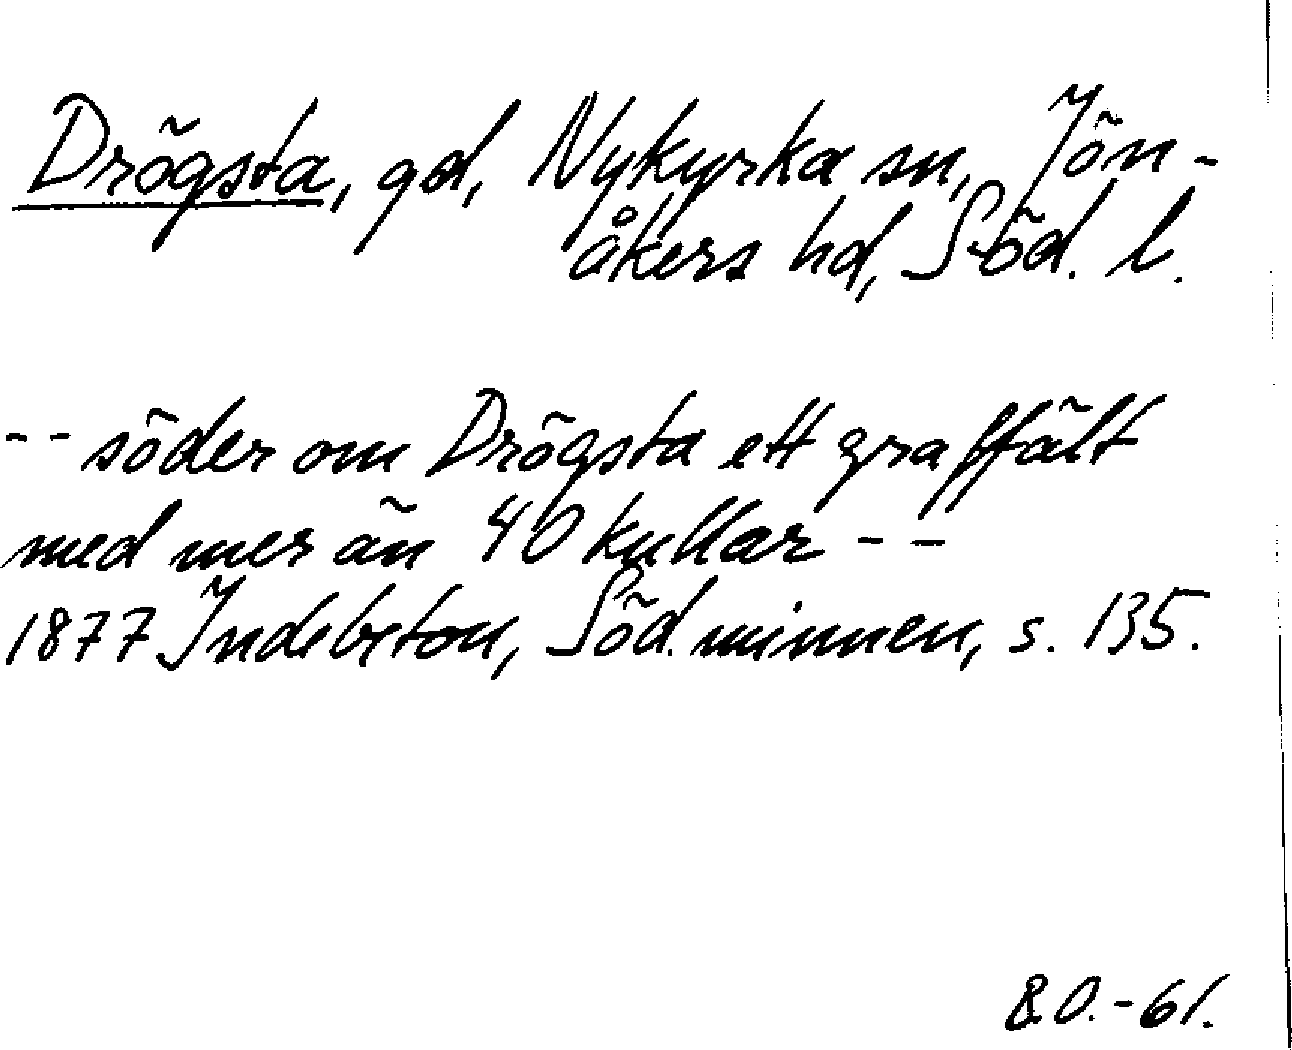 Drögsta, gd, Nykyrka sn, Jön-
åkers hd, Söd. l.
-- söder om Drögsta ett graffält
med mer än 40 kullar --
1877 Indebetou, Söd. minnen, s. 135.
B.O. -61.